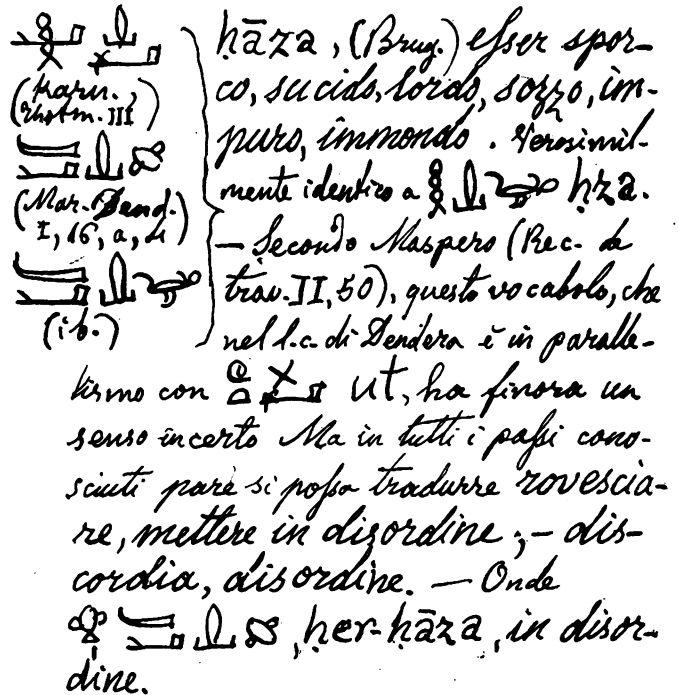 ḥāza, (Brug.) eſser spor-
(Karn., Thotm. III)
co, sucido, lordo, sozzo, im-
puro, immondo. Verosimil-
mente identico a ḥza.
(Mar. Dend. I, 16, a, 4)
— Secondo Maspero (Rec. de
trav. II, 50), questo vocabolo, che
(ib.)
nel l.c. di Dendera è in paralle-
lismo con ut, ha finora un
senso incerto Ma in tutti i paſsi cono-
sciuti pare si poſsa tradurre rovescia-
re, mettere in disordine; – dis-
cordia, disordine. — Onde
, ḥer-ḥāza, in disor-
dine.